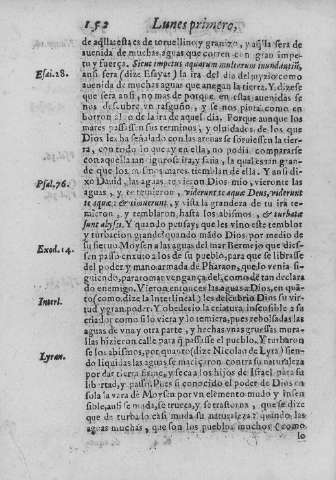 152 Lunes primero,
de aq̃lla; esta es de toruellino y granizo, y aq̃lla sera de
auenida de muchas aguas que corren con gran impe-
tu y fuerça. Sicut impetus aquarum multarum inundantiũ,
Esai. 28. ansi sera (dize Esayas) la ira del dia del juyzio como
auenida de muchas aguas que anegan la tierra. Y dize se
que ansi sera, no mas de porque en estas auenidas se
nos descubre vn rasguño, y se nos pinta como en
borron algo de la ira de aquel dia. Porque aunque los
mares passassen sus terminos, y oluidados de los que
Dios les ha señalado con las arenas se subiessen la tier-
ra, con todo lo que ay en ella, no podia compararse
con aquella tan rigurosa ira, y saña, la qual es tan gran-
de que los mismos mares tiemblan de ella. Y ansi di-
Psal. 76. xo Dauid, las aguas te vieron Dios mio, vieronte las
aguas, y te temieron, viderunt te aquæ Deus, viderunt
te aquæ, & timuerunt, y vista la grandeza de tu ira te-
mieron, y temblaron, hasta los abismos, & turbatæ
sunt abyssi. Y quando pensays, que les vino este temblor
y turbacion grande? quando mãdo Dios por medio de
Exod. 14. su sieruo Moysen a las aguas del mar Bermejo que dies-
sen passo enxuto a los de su pueblo, para que se librasse
del poder y mano armada de Pharaon, que lo venia si-
guiendo, para tomar vengança del, como de tan declara
do enemigo. Vieron entonces las aguas a Dios, en quã-
Interl. to (como dize la interlineal) les descubrio Dios su vir-
tud y gran poder. Y obedecio la criatura insensible a su
criador como si lo viera y lo temiera, pues reboluadas las
aguas de vna y otra parte, y hechas vnas gruessas mura-
llas hizieron calle para q̃ passasse el pueblo. Y turbaron
se los abismos, por quanto (dize Nicolao de Lyra) sien-
Lyran. do liquidas las aguas se hizieron contra su naturaleza
por dar tierra firme, y seca a los hijos de Israel para su
libertad, y passo. Pues si conocido el poder de Dios en
sola la vara de Moysen por vn elemento mudo y insen
sible, ansi se muda, se trueca, y se trastorna, que se dize
que de turbado casi muda su naturaleza? quando las
aguas muchas, que son los pueblos muchos (como
lo